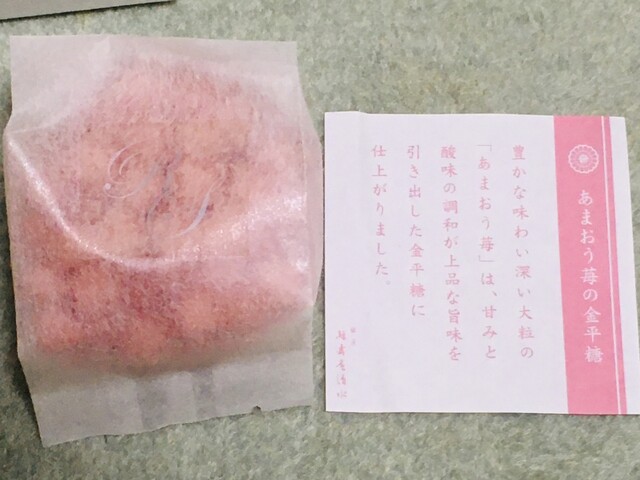 あまおう苺の金平糖
豊かな味わい深い大粒の
「あまおう苺」は、甘みと
酸味の調和が上品な旨味を
引き出した金平糖に
仕上がりました。